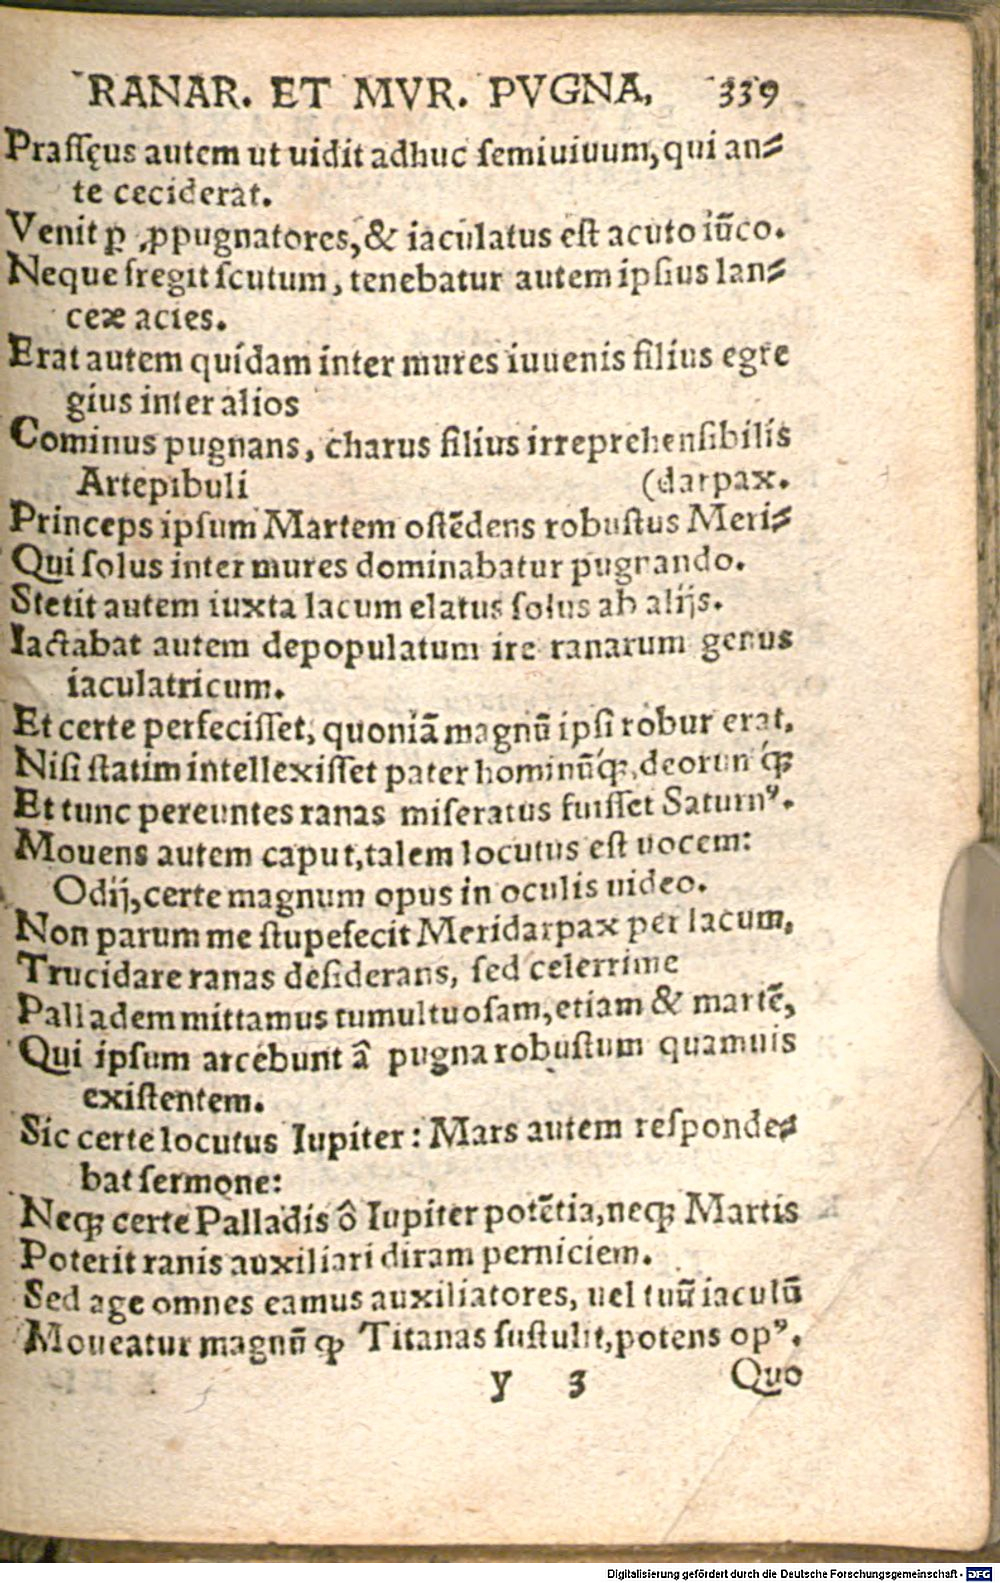 RANAR. ET MVR. PVGNA, 339
Prassęus autem ut uidit adhuc semiuiuum, qui an⸗
te ceciderat.
Venit ꝑ ꝓpugnatores, & iaculatus est acuto iũco.
Neque fregit scutum, tenebatur autem ipsius lan⸗
ceæ acies.
Erat autem quidam inter mures iuuenis filius egre
gius inter alios
Cominus pugnans, charus filius irreprehensibilis
Artepibuli (darpax.
Princeps ipsum Martem ostẽdens robustus Meri⸗
Qui solus inter mures dominabatur pugnando.
Stetit autem iuxta lacum elatus solus ab alijs.
Iactabat autem depopulatum ire ranarum genus
iaculatricum.
Et certe perfecisset, quoniã magnũ ipsi robur erat,
Nisi statim intellexisset pater hominũq́ꝫ, deorum q́ꝫ
Et tunc pereuntes ranas miseratus fuisset Saturnꝰ.
Mouens autem caput, talem locutus est uocem:
Odij, certe magnum opus in oculis uideo.
Non parum me stupefecit Meridarpax per lacum,
Trucidare ranas desiderans, sed celerrime
Palladem mittamus tumultuosam, etiam & martẽ,
Qui ipsum arcebunt â pugna robustum quamuis
existentem.
Sic certe locutus Iupiter: Mars autem responde⸗
bat sermone:
Neqꝫ certe Palladis ô Iupiter potẽtia, neqꝫ Martis
Poterit ranis auxiliari diram perniciem.
Sed age omnes eamus auxiliatores, uel tuũ iaculũ
Moueatur magnũ qꝫ Titanas sustulit, potens opꝰ.
y 3 Quo
Digitalisierung gefördert durch die Deutsche Forschungsgemeinschaft - DFG